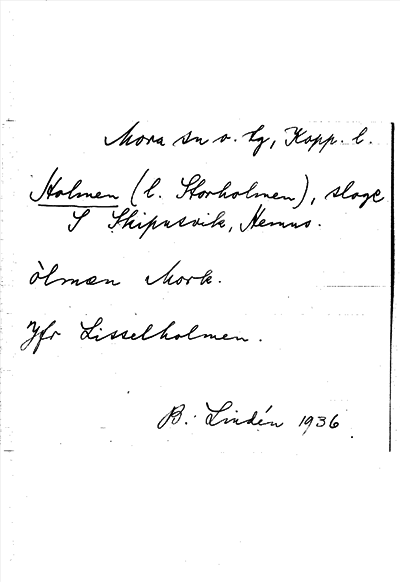 Mora sn o. tg, Kopp. l.
Holmen (l. Storholmen), sloge
S Skipusvik, Nemus.
òlmæn Mork.
Jfr Lisselholmen.
B. Lindén 1936